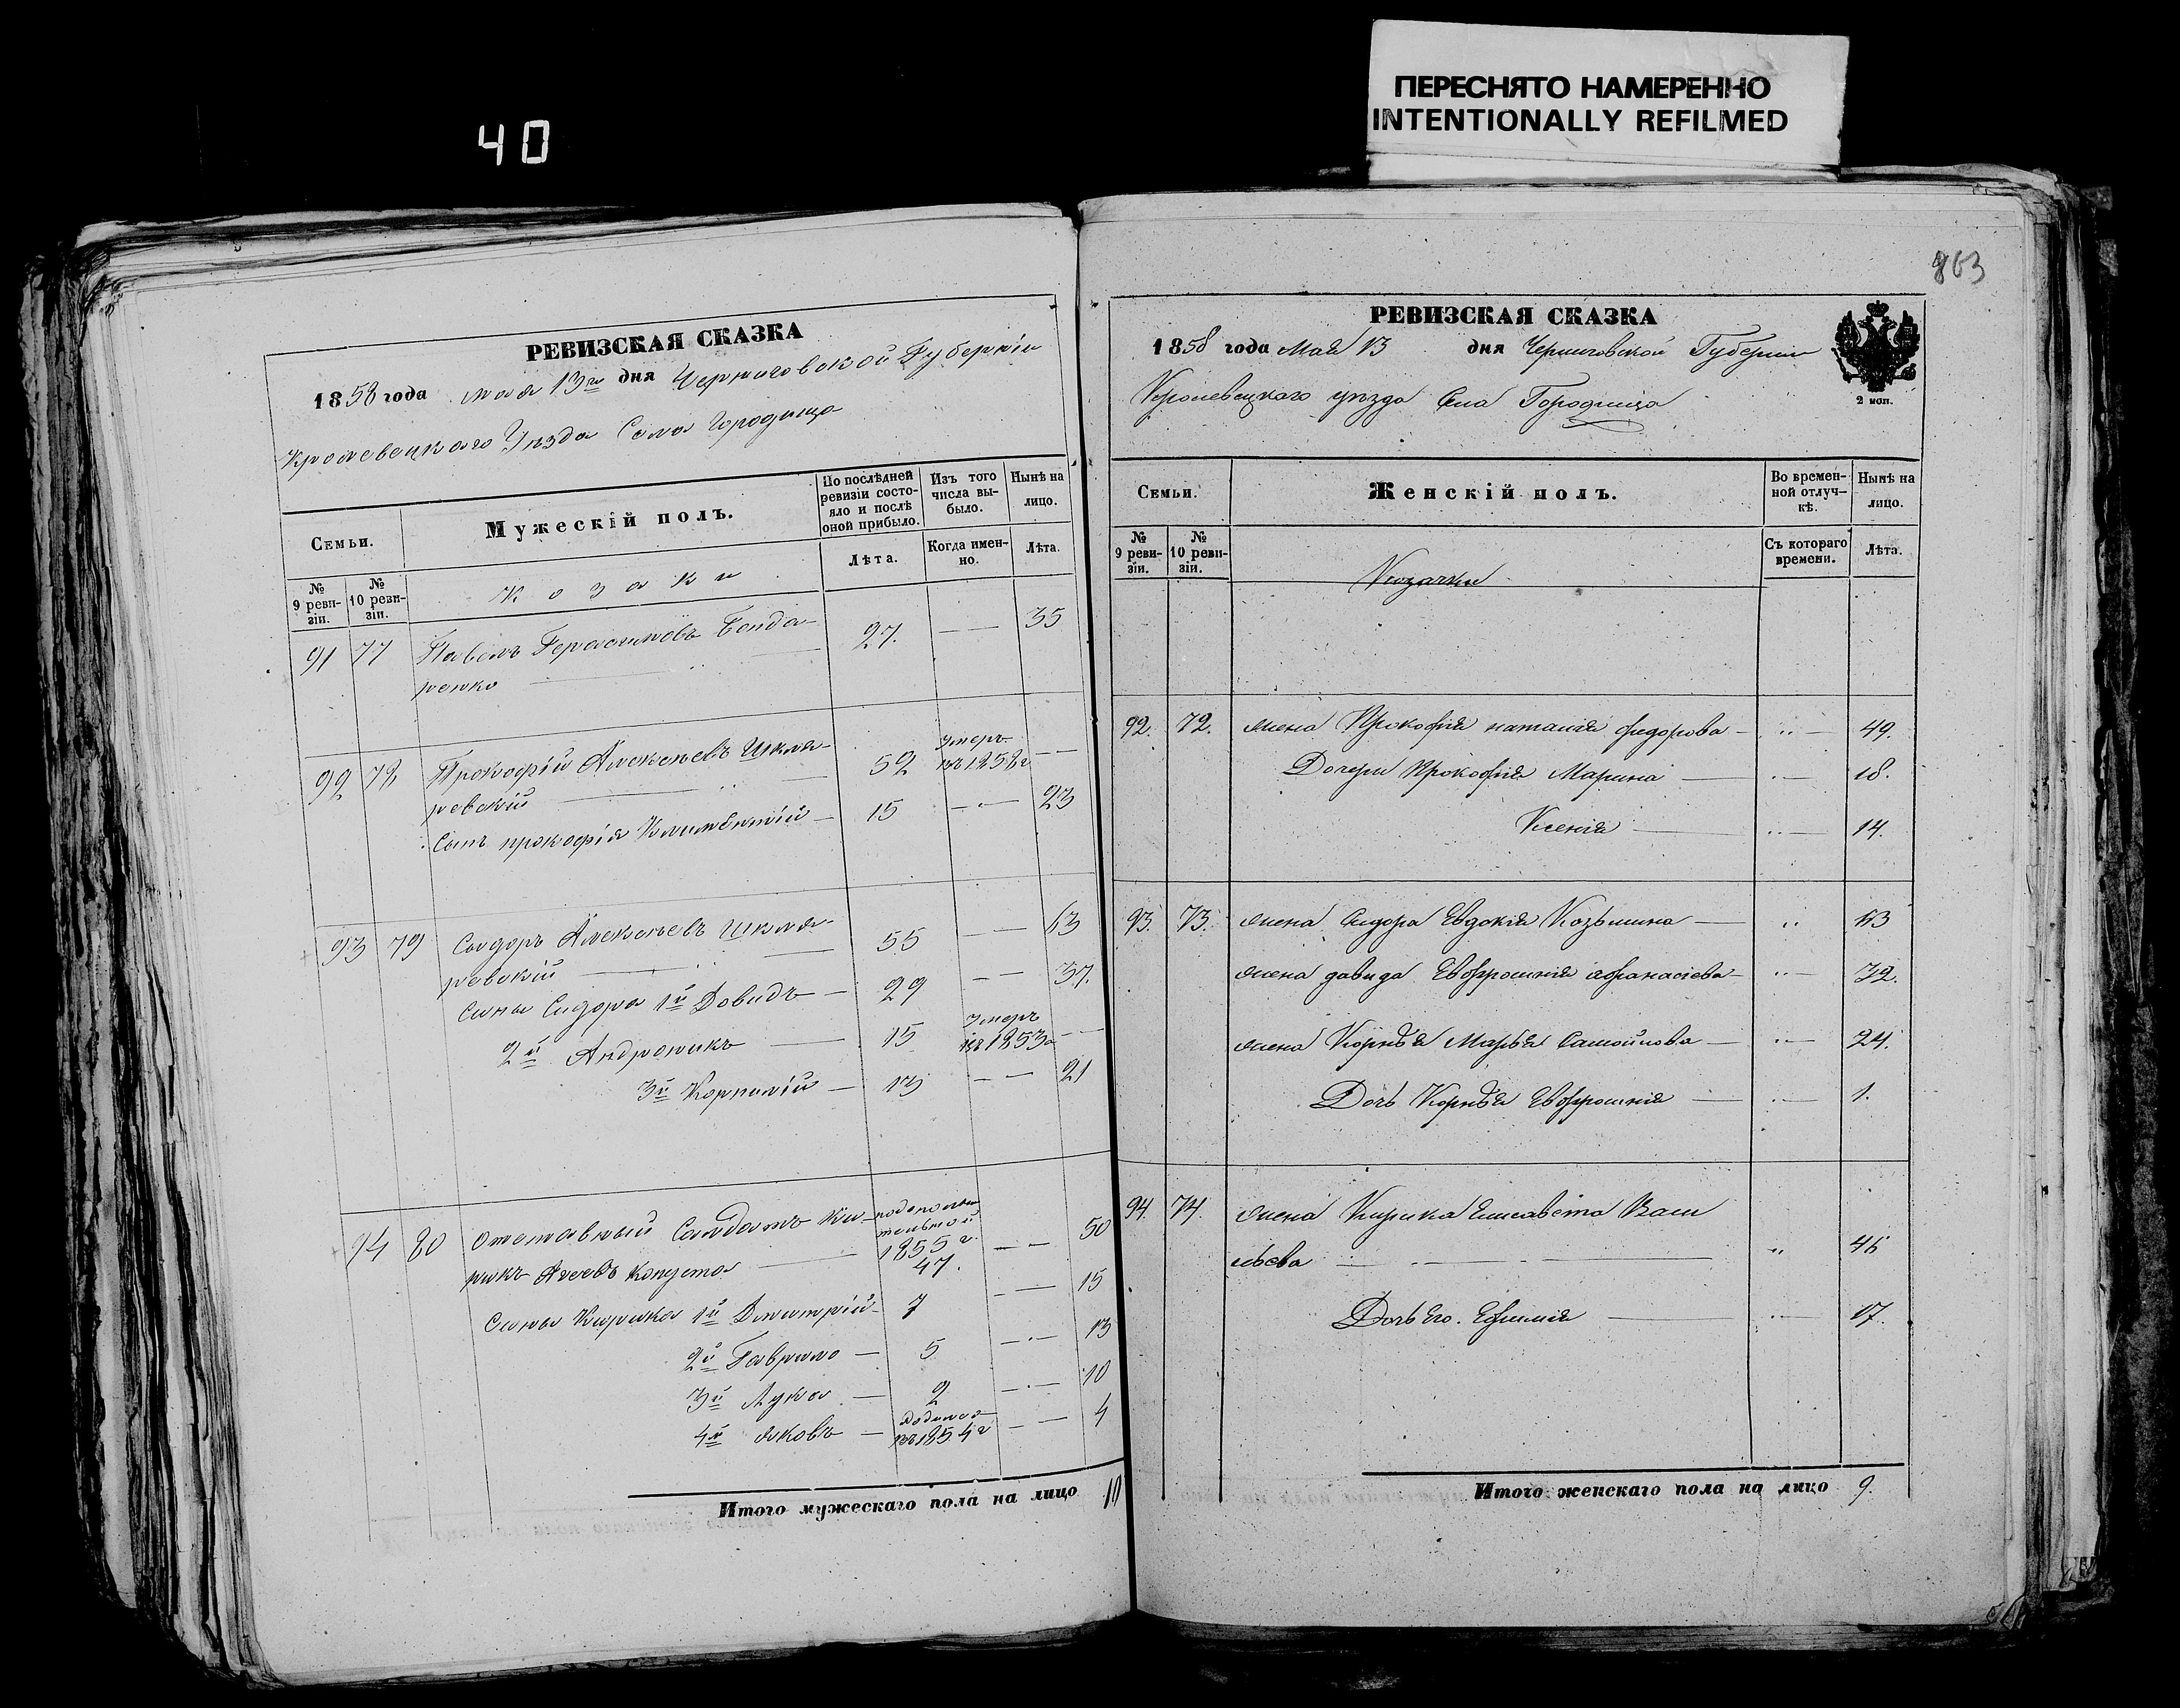 40
ПЕРЕСНЯТО НАМЕРЕННО
INTENTIONALLY REFILMED
РЕВИЗСКАЯ СКАЗКА
1858 года мая 13го дня Черниговской Губерніи
Кролевецкаго Уѣзда Села Городища
Семьи.
Мужескій полъ.
По послѣдней ревизіи состояло и послѣ оной прибыло.
Изъ того числа выбыло.
Нынѣ на лицо.
№ 9 ревизіи.
№ 10 ревизіи.
Козаки
Лѣта.
Когда именно.
Лѣта.
91 77 Павелъ Герасимовъ Бонда- 27. — 35
ренко
92 78 Прокофій Алексѣевъ Шкля- 52 умеръ въ 1858г —
ревскій
Сынъ прокофія Климентій — 15 — 23
93 79 Сидоръ Алексѣевъ Шкля- 55 — 63
ревскій
Сыны Сидора 1й Давидъ — 29 — 37.
2й Андроникъ — 15 умеръ въ 1853г —
3й Корнилій — 13 — 21
94 80 Отставный Салдатъ Ки- 1855 г. 47. — 50
рикъ Капуста
Сыны Кирика 1й Дмитрій — 7 — 15
2й Гаврило — 5 — 13
3й Лука — 2 — 10
4й Яковъ — родился въ 1854г — 4
Итого мужескаго пола на лицо 10
863
РЕВИЗСКАЯ СКАЗКА
1858 года Мая 13 дня Черниговской Губерніи
2 коп.
Кролевецкаго уѣзда Села Городища
Семьи.
Женскій полъ.
Во временной отлучкѣ.
Нынѣ на лицо.
№ 9 ревизіи.
№ 10 ревизіи.
Козачки
Съ котораго времени.
Лѣта.
92. 72. Жена Прокофія наталія федорова — 49.
Дочери Прокофія Марина — 18.
Ксенія — 14.
93. 73. Жена Сидора Евдокія Козьмина — 63
Жена давида Евфросинія афанасіева — 32.
Жена Корнѣя Марья Самойлова — 24.
Дочь Корнѣя Евфросинія — 1.
94. 74. Жена Кирика Елисавета Васи
льева — 46
Дочь Его. Ефимія — 17.
Итого женскаго пола на лицо 9.